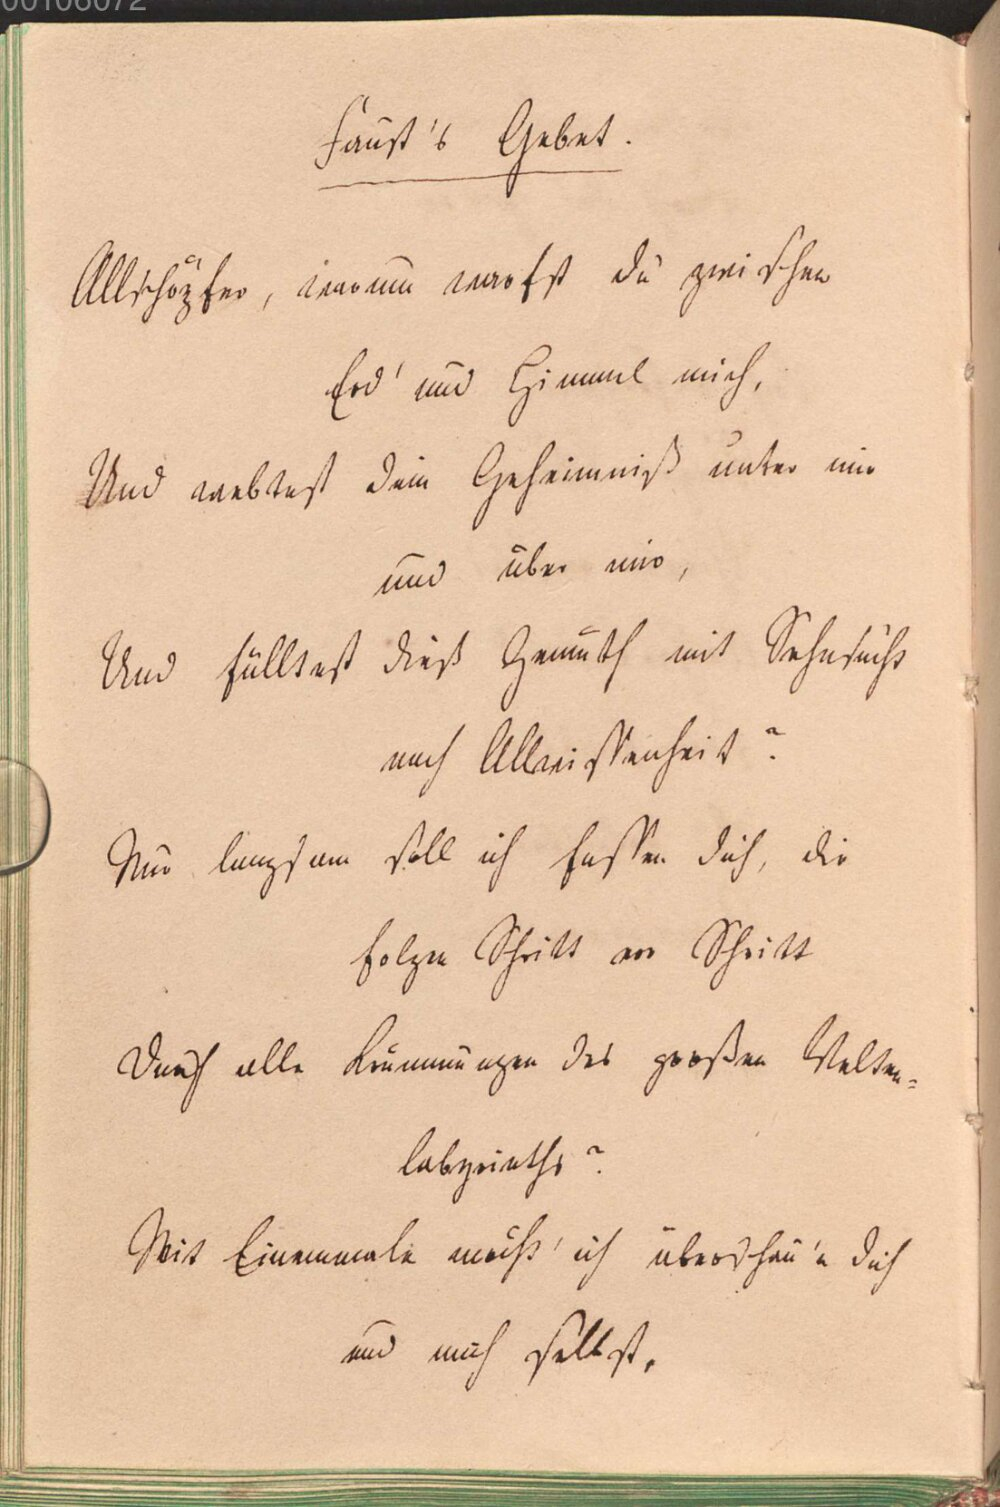 00106072
Faust's Gebet.
Allschöpfer, warum warfst du zwischen
Erd' und Himmel mich,
Und webtest dein Geheimniß unter mir
und über mir,
Und fülltest dieß Gemüth mit Sehnsucht
nach Allwissenheit?
Nur langsam soll ich fassen dich, dir
folgen Schritt vor Schritt
Durch alle Krümmungen des großen Welten-
labyrinths?
Mit Einemmale möcht' ich überschau'n dich
und mich selbst.